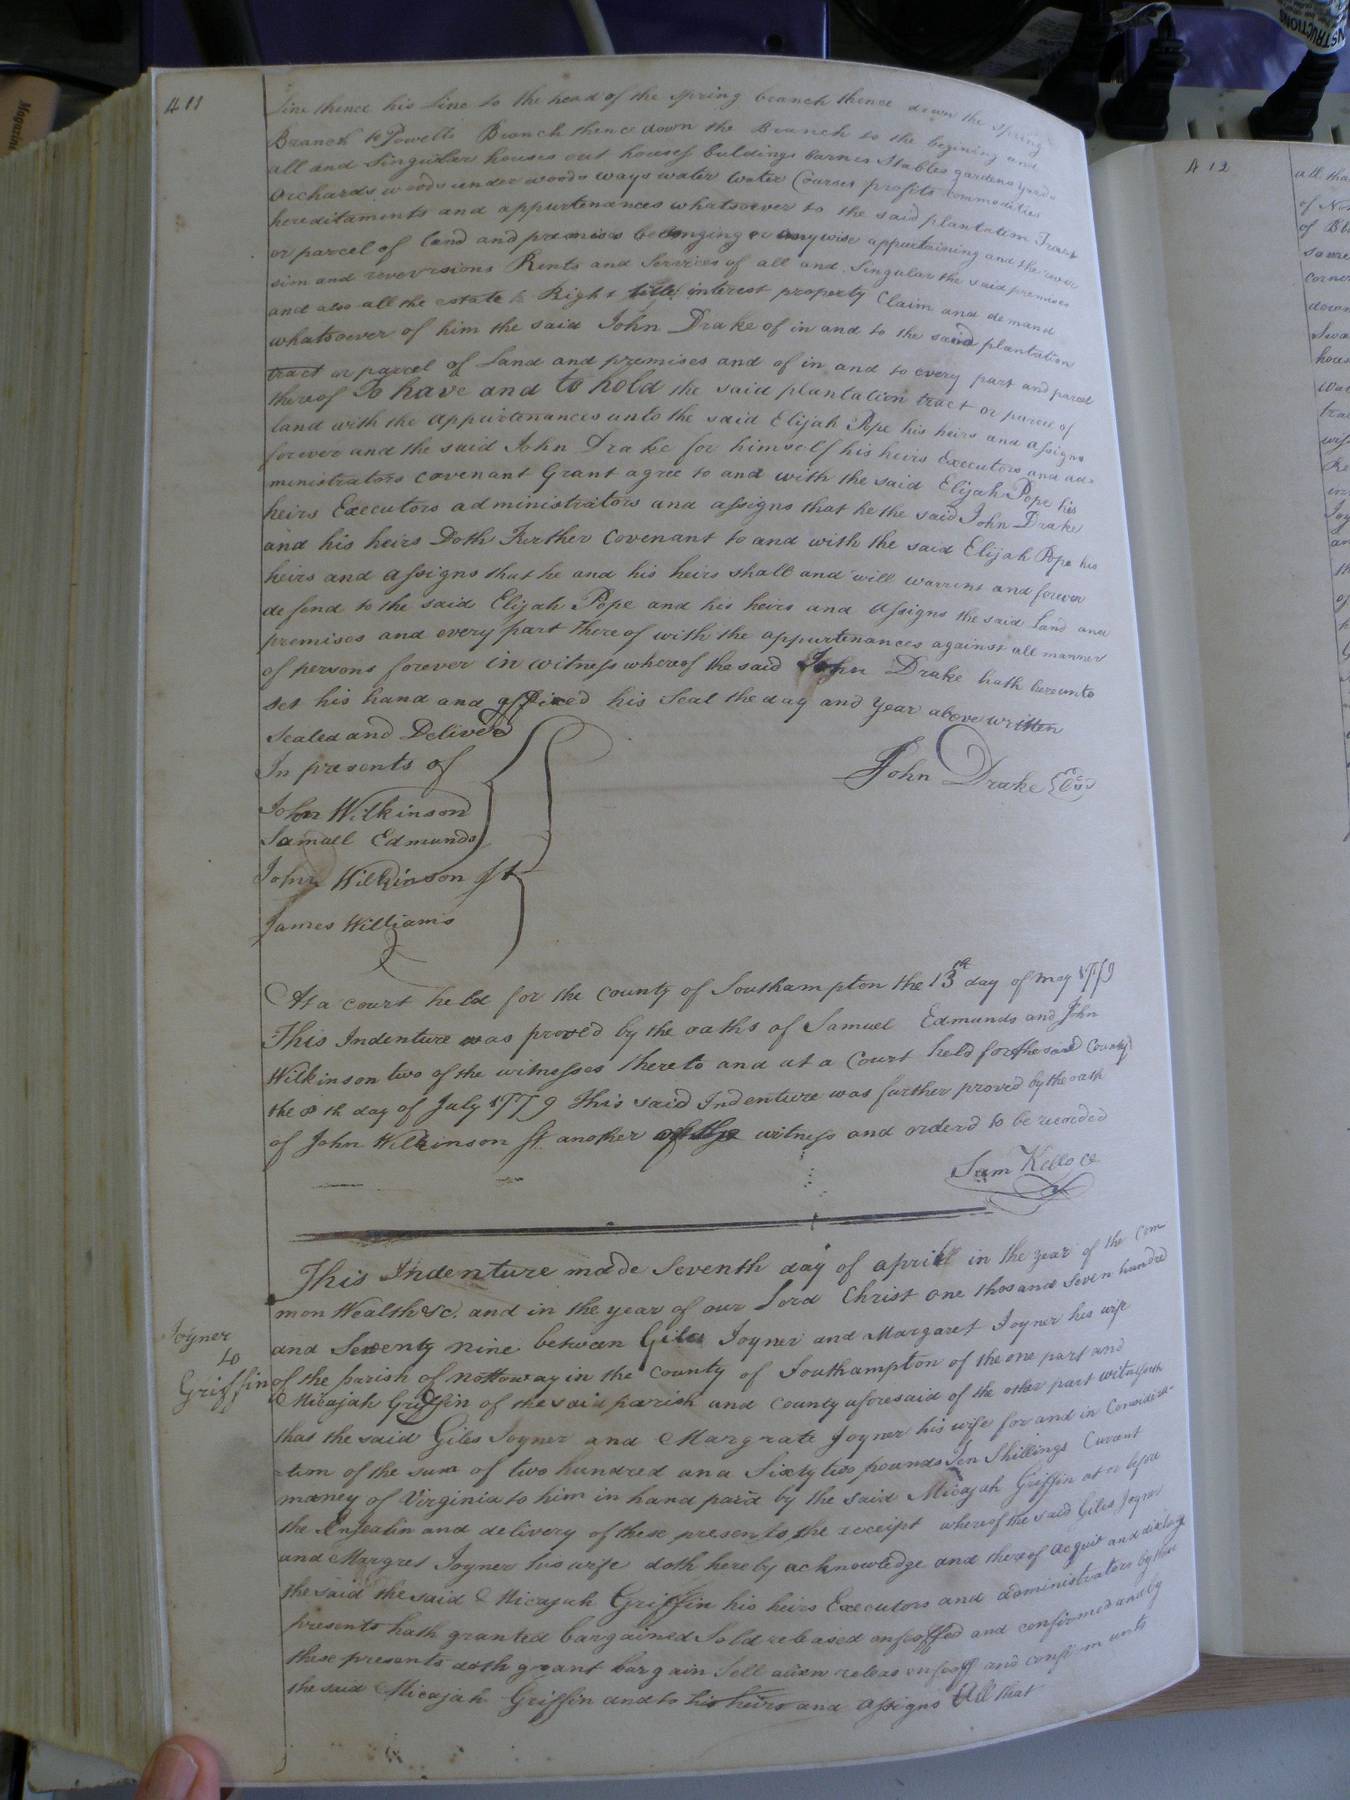 411
line thence his line to the head of the spring branch thence down the spring
Branch to Powells Branch thence down the Branch to the begining and
all and Singular houses out houses buldings barnes Stables gardens yards
Orchards woods under woods ways water water Courses profits commodities
hereditaments and appurtenances whatsoever to the said plantation Tract
or parcel of land and premises belonging or any wise appurtaining and the rever
sion and reversions Rents and Services of all and Singular the said premises
and also all the estate Right title interest property Claim and demand
whatsoever of him the said John Drake of in and to the said plantation
tract or parcel of Land and premises and of in and to every part and parcel
thereof To have and to hold the said plantation tract or parcel of
land with the appurtenances unto the said Elijah Pope his heirs and assigns
forever and the said John Drake for himself his heirs Executors and ad-
ministrators covenant Grant agree to and with the said Elijah Pope his
heirs Executors administrators and assigns that he the said John Drake
and his heirs Doth Further Covenant to and with the said Elijah Pope his
heirs and assigns that he and his heirs shall and will warrent and forever
defend to the said Elijah Pope and his heirs and Assigns the said Land and
premises and every part thereof with the appurtenances against all manner
of persons forever in witness whereof the said John Drake hath hereunto
set his hand and affixed his Seal the day and year above written
Sealed and Deliverd
In presents of
John Drake
John Wilkinson
Samuel Edmunds
John Wilkinson
James Williams
At a court held for the county of Southampton the 13th day of may 1779
This Indenture was proved by the oaths of Samuel Edmunds and John
Wilkinson two of the witnesses thereto and at a Court held for the said County
the 8th day of July 1779 This said Indenture was further proved by the oath
of John Wilkinson another witness and orderd to be recorded
Sam Kello CC
This Indenture made Seventh day of aprill in the year of the Com
mon Wealth &c. and in the year of our Lord Christ one thosand Seven hundred
and Seventy nine between Giles Joyner and Margaret Joyner his wife
Joyner
to
Griffin
of the parish of nottoway in the county of Southampton of the one part and
Micajah Griffin of the said parish and county aforesaid of the other part witnesseth
that the said Giles Joyner and Margrate Joyner his wife for and in Considera-
-tion of the sum of two hundred and Sixty two pounds Ten Shillings Curant
money of Virginia to him in hand paid by the said Micajah Griffin at or before
the Ensealin and delivery of these presents the receipt whereof the said Giles Joyner
and Margret Joyner his wife doth hereby acknowledge and thereof acquit and discharg
the said the said Micajah Griffin his heirs Executors and administrators by these
presents hath granted bargained Sold released enfeoffed and confirmed and by
these presents doth grant bargain Sell alien releas enfeoff and confirm unto
the said Micajah Griffin and to his heirs and assigns All that
412
all tha
of No
of Bl
same
corne
down
Swa
hous
tra